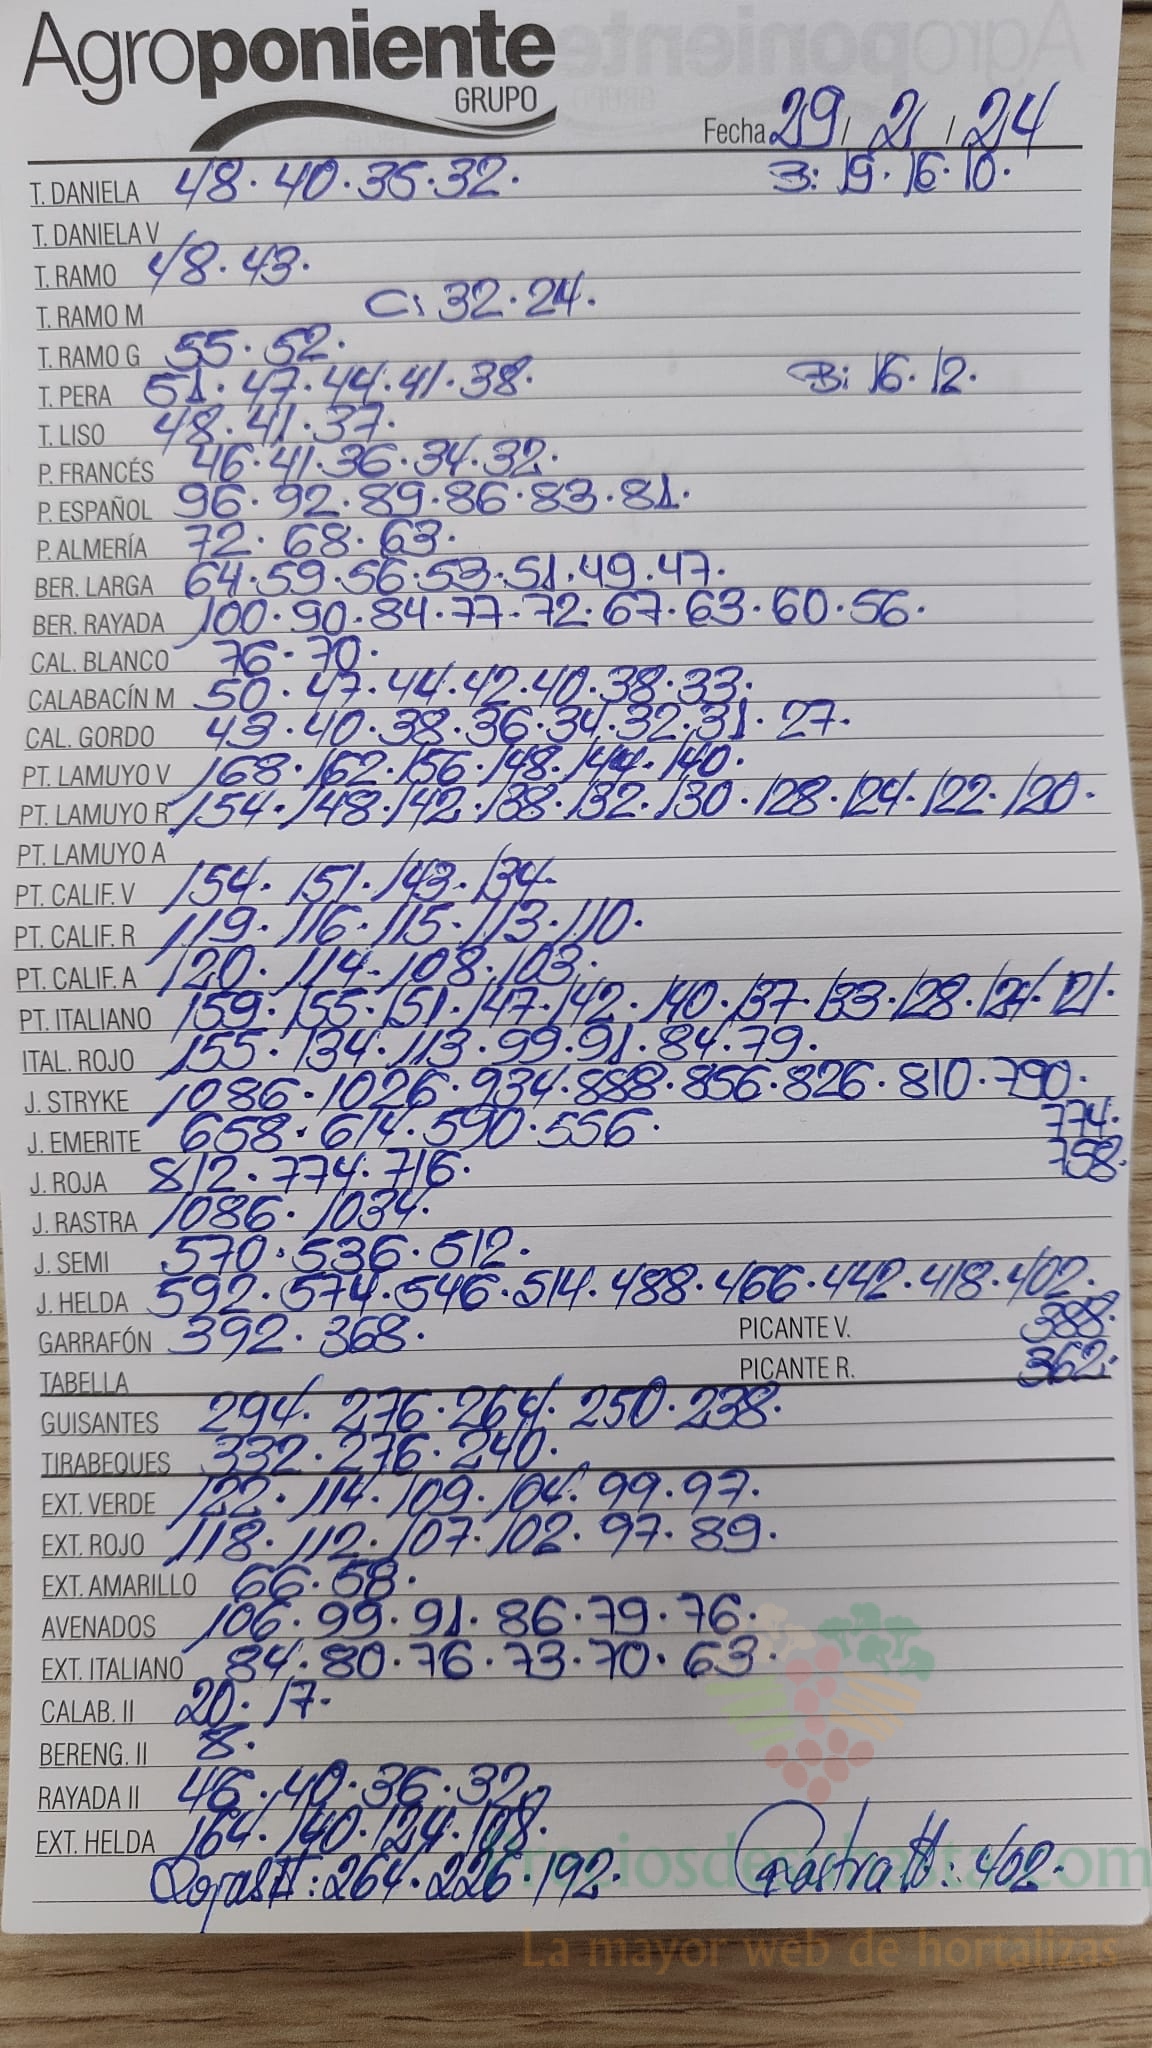 Agroponiente
GRUPO
Fecha 29 / 2 / 24
T. DANIELA 48. 40. 35. 32. B: 19. 16. 10.
T. DANIELA V
T. RAMO 48. 43.
T. RAMO M C: 32. 24.
T. RAMO G 55. 52.
T. PERA 51. 47. 44. 41. 38. B: 16. 12.
T. LISO 48. 41. 37.
P. FRANCÉS 46. 41. 36. 34. 32.
P. ESPAÑOL 96. 92. 89. 86. 83. 81.
P. ALMERÍA 72. 68. 63.
BER. LARGA 64. 59. 56. 53. 51. 49. 47.
BER. RAYADA 100. 90. 84. 77. 72. 67. 63. 60. 56.
CAL. BLANCO 76. 70.
CALABACÍN M 50. 47. 44. 42. 40. 38. 33.
CAL. GORDO 43. 40. 38. 36. 34. 32. 31. 27.
PT. LAMUYO V 168. 162. 156. 148. 144. 140.
PT. LAMUYO R 154. 148. 142. 138. 132. 130. 128. 124. 122. 120.
PT. LAMUYO A
PT. CALIF. V 154. 151. 143. 134.
PT. CALIF. R 119. 116. 115. 113. 110.
PT. CALIF. A 120. 114. 108. 103.
PT. ITALIANO 159. 155. 151. 147. 142. 140. 137. 133. 128. 124. 121.
ITAL. ROJO 155. 134. 113. 99. 91. 84. 79.
J. STRYKE 1086. 1026. 934. 888. 856. 826. 810. 790.
J. EMERITE 658. 614. 590. 556. 774.
J. ROJA 812. 774. 716. 758.
J. RASTRA 1086. 1034.
J. SEMI 570. 536. 512.
J. HELDA 592. 574. 546. 514. 488. 466. 442. 418. 402.
GARRAFÓN 392. 368. PICANTE V. 388.
TABELLA PICANTE R. 362.
GUISANTES 294. 276. 264. 250. 238.
TIRABEQUES 332. 276. 240.
EXT. VERDE 122. 114. 109. 104. 99. 97.
EXT. ROJO 118. 112. 107. 102. 97. 89.
EXT. AMARILLO 66. 58.
AVENADOS 106. 99. 91. 86. 79. 76.
EXT. ITALIANO 84. 80. 76. 73. 70. 63.
CALAB. II 20. 17.
BERENG. II 8.
RAYADA II 46. 40. 36. 32.
EXT. HELDA 164. 140. 124. 108.
Rojas II: 264. 226. 192. Rastra II: 402.
La mayor web de hortalizas